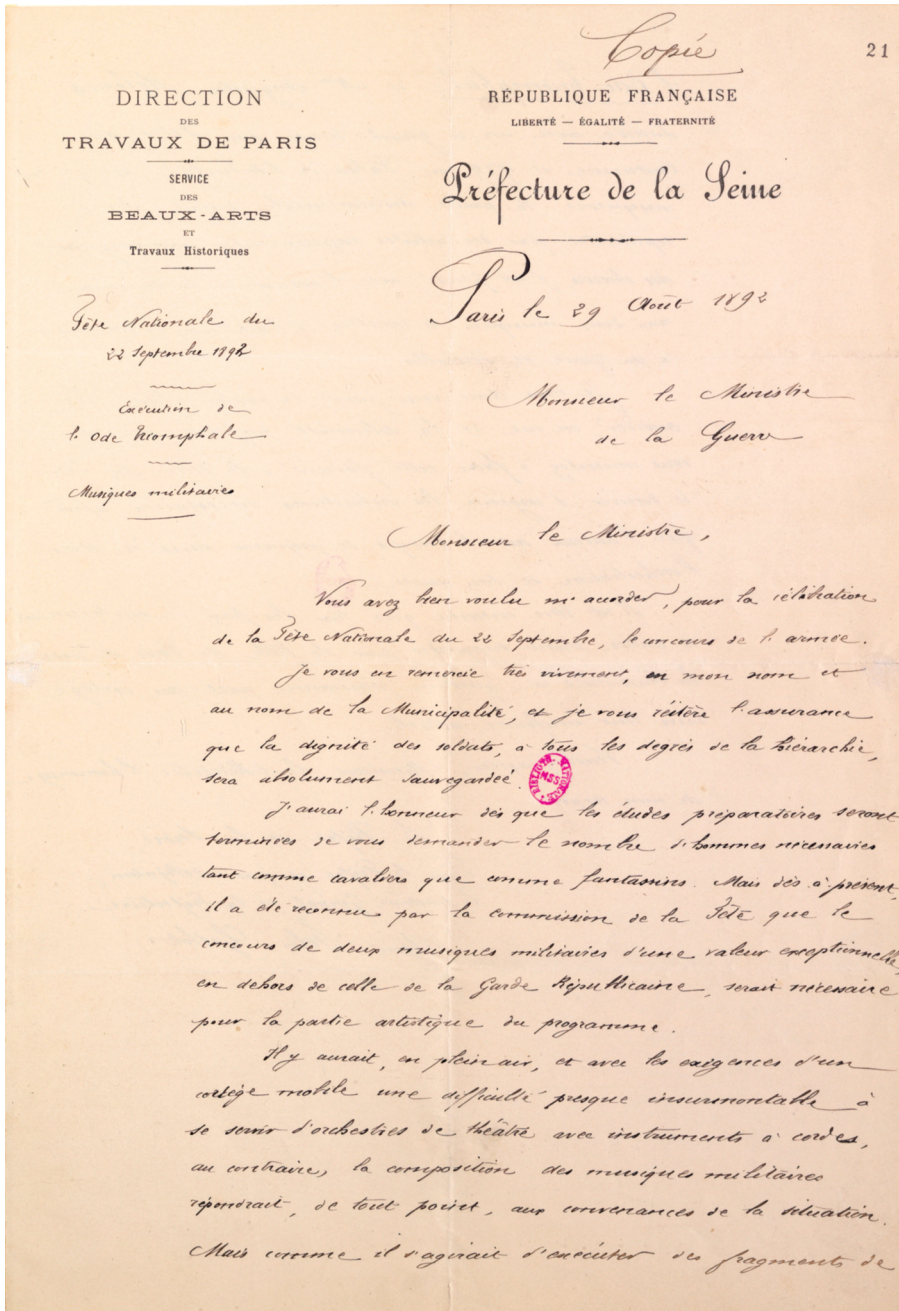 Copie
21
DIRECTION
DES
TRAVAUX DE PARIS
SERVICE
DES
BEAUX-ARTS
ET
Travaux Historiques
RÉPUBLIQUE FRANÇAISE
LIBERTÉ — ÉGALITÉ — FRATERNITÉ
Préfecture de la Seine
Paris le 29 Août 1892
Fête Nationale du
22 Septembre 1892
Exécution de
l'Ode Triomphale
Musiques militaires
Monsieur le Ministre
de la Guerre
Monsieur le Ministre,
Vous avez bien voulu m'accorder, pour la célébration
de la Fête Nationale du 22 Septembre, le concours de l'armée.
Je vous en remercie très vivement, en mon nom et
au nom de la Municipalité, et je vous réitère l'assurance
que la dignité des soldats, à tous les degrés de la hiérarchie,
sera absolument sauvegardée.
BIBLIOTH. NATIONALE MSS
J'aurai l'honneur dès que les études préparatoires seront
terminées de vous demander le nombre d'hommes nécessaires
tant comme cavaliers que comme fantassins. Mais dès à présent,
il a été reconnu par la commission de la Fête que le
concours de deux musiques militaires d'une valeur exceptionnelle,
en dehors de celle de la Garde Républicaine, serait nécessaire
pour la partie artistique du programme.
Il y aurait, en plein air, et avec les exigences d'un
cortège mobile une difficulté presque insurmontable à
se servir d'orchestres de théâtre avec instruments à cordes,
au contraire, la composition des musiques militaires
répondrait, de tout point, aux convenances de la situation.
Mais comme il s'agirait d'exécuter des fragments de